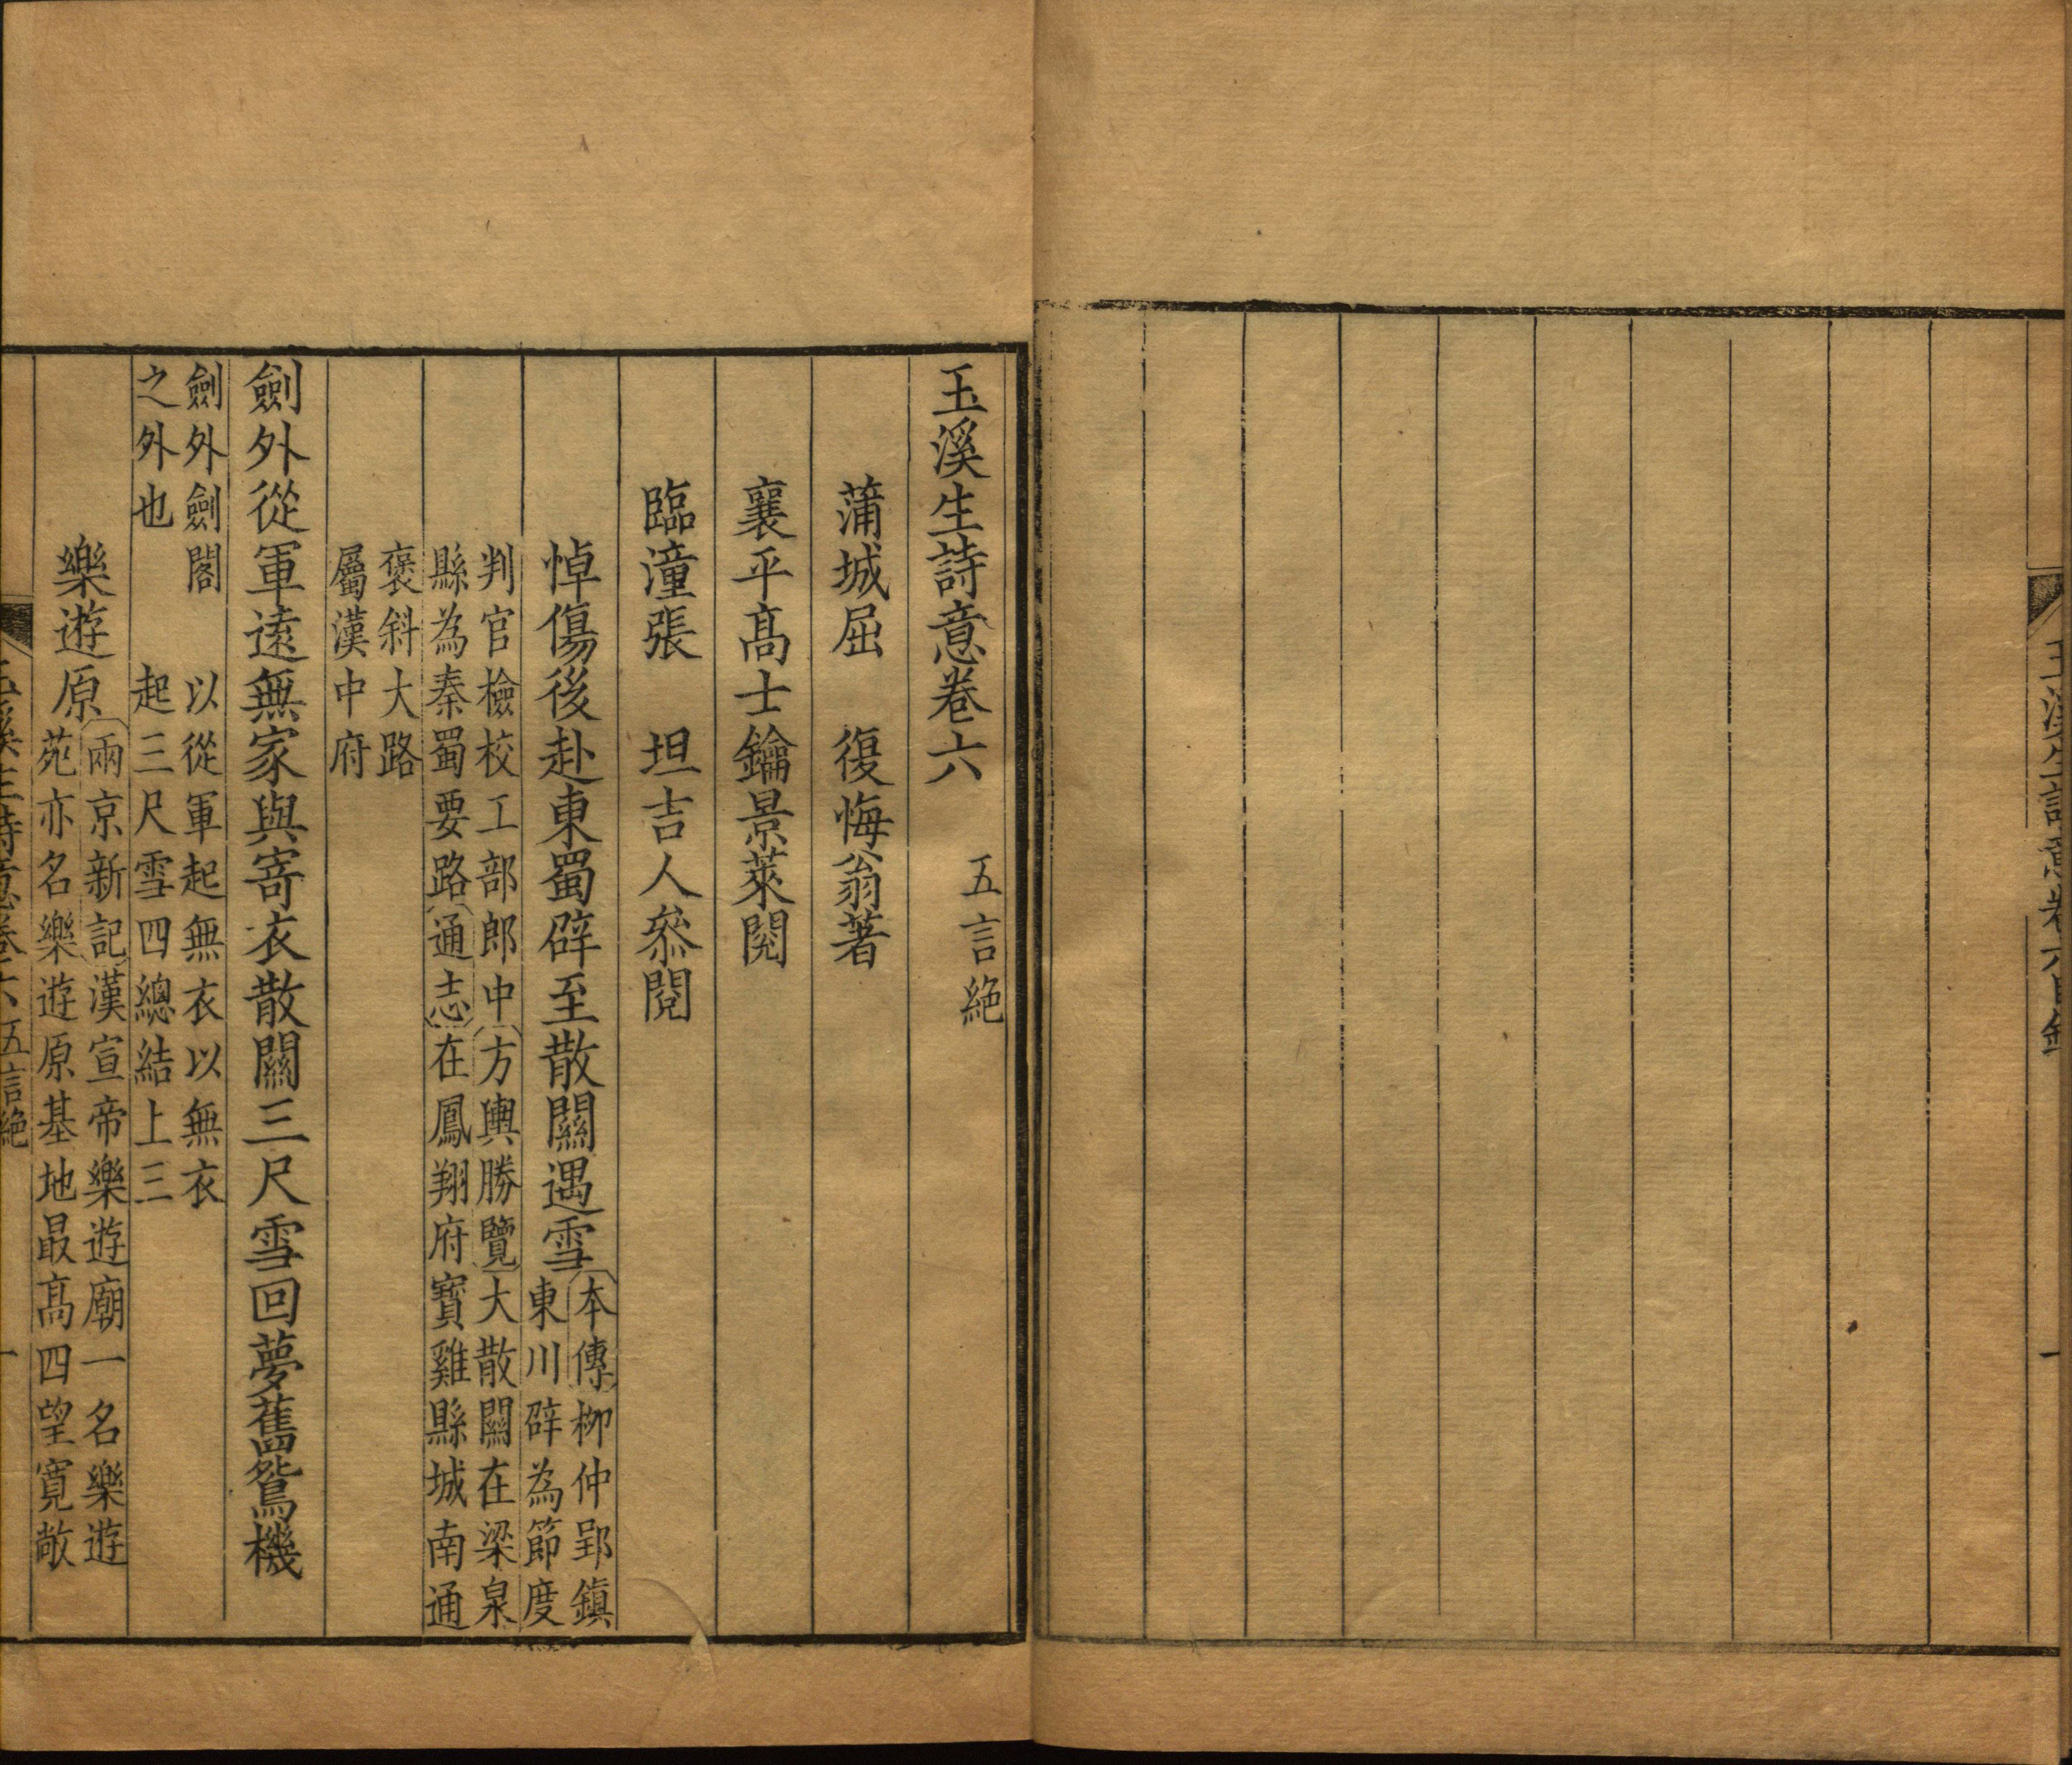 玉溪生詩意卷六目錄
一
玉溪生詩意卷六
五言絕
蒲城屈　復悔翁著
襄平高士鑰景萊閱
臨潼張　坦吉人叅閱
悼傷後赴東蜀辟至散關遇雪
本傳柳仲郢鎮
東川辟為節度
判官檢校工部郎中方輿勝覽大散關在梁泉
縣為秦蜀要路通志在鳳翔府寶雞縣城南通
褒斜大路
屬漢中府
劍外從軍遠無家與寄衣散關三尺雪回夢舊鴛機
劍外劍閣
之外也
以從軍起無衣以無衣
起三尺雪四總結上三
樂遊原
兩京新記漢宣帝樂遊廟一名樂遊
苑亦名樂遊原基地最高四望寬敞
玉溪生詩意卷六五言絕
一